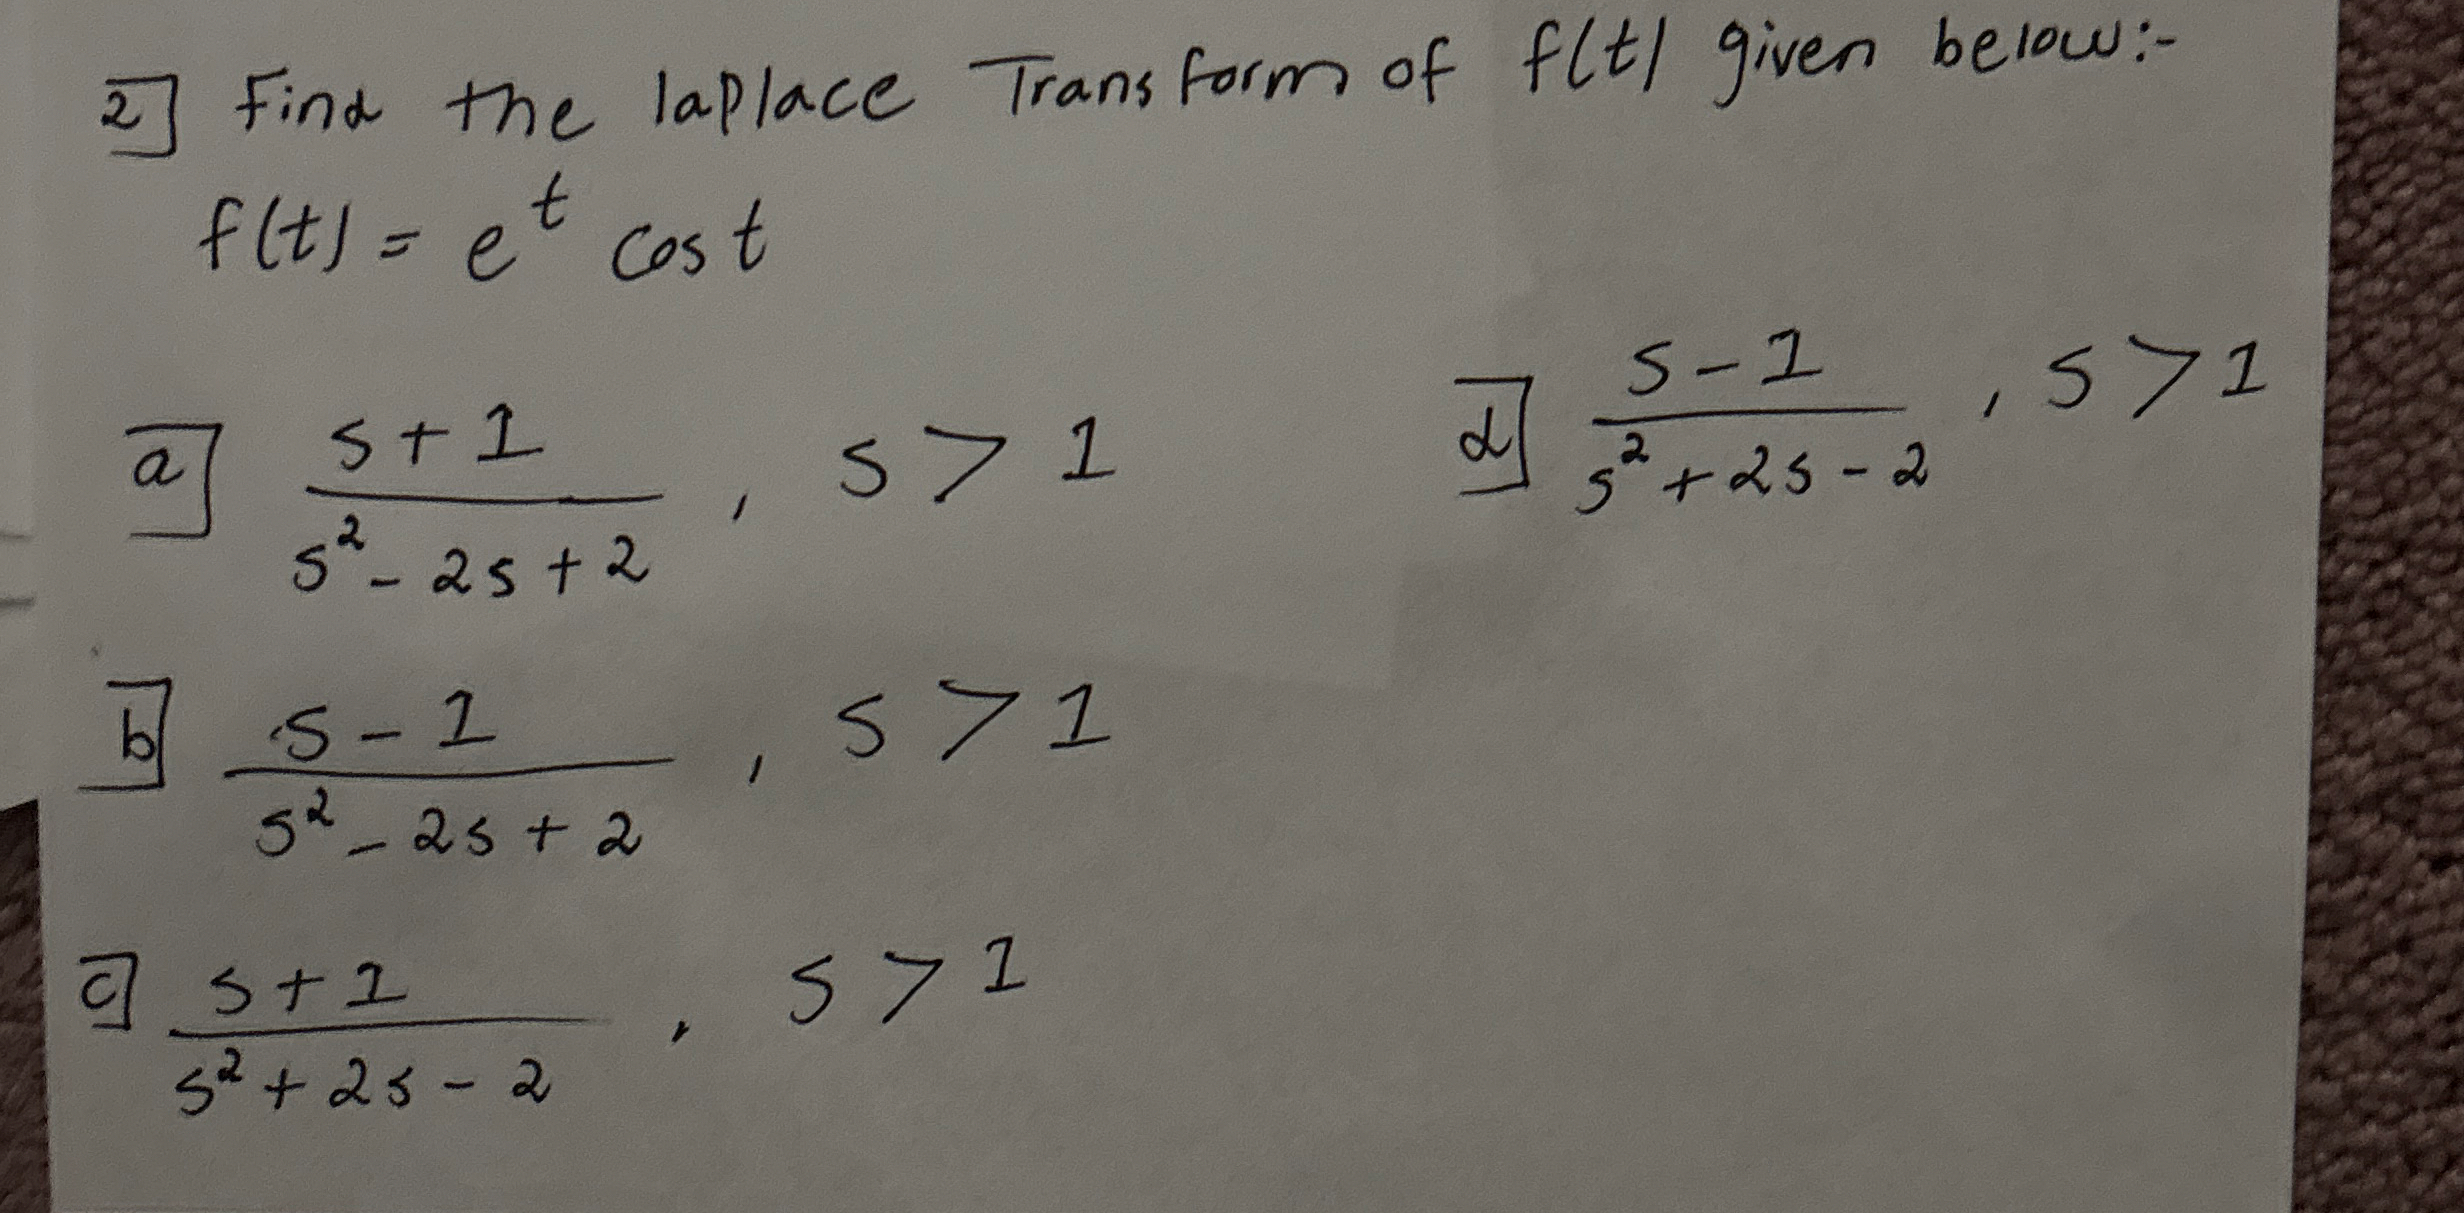 2] Find the laplace Transform of f(t) given below:-
f(t) = e^t cos t
a] (s+1)/(s²-2s+2), s>1
b] (s-1)/(s²-2s+2), s>1
c] (s+1)/(s²+2s-2), s>1
d] (s-1)/(s²+2s-2), s>1